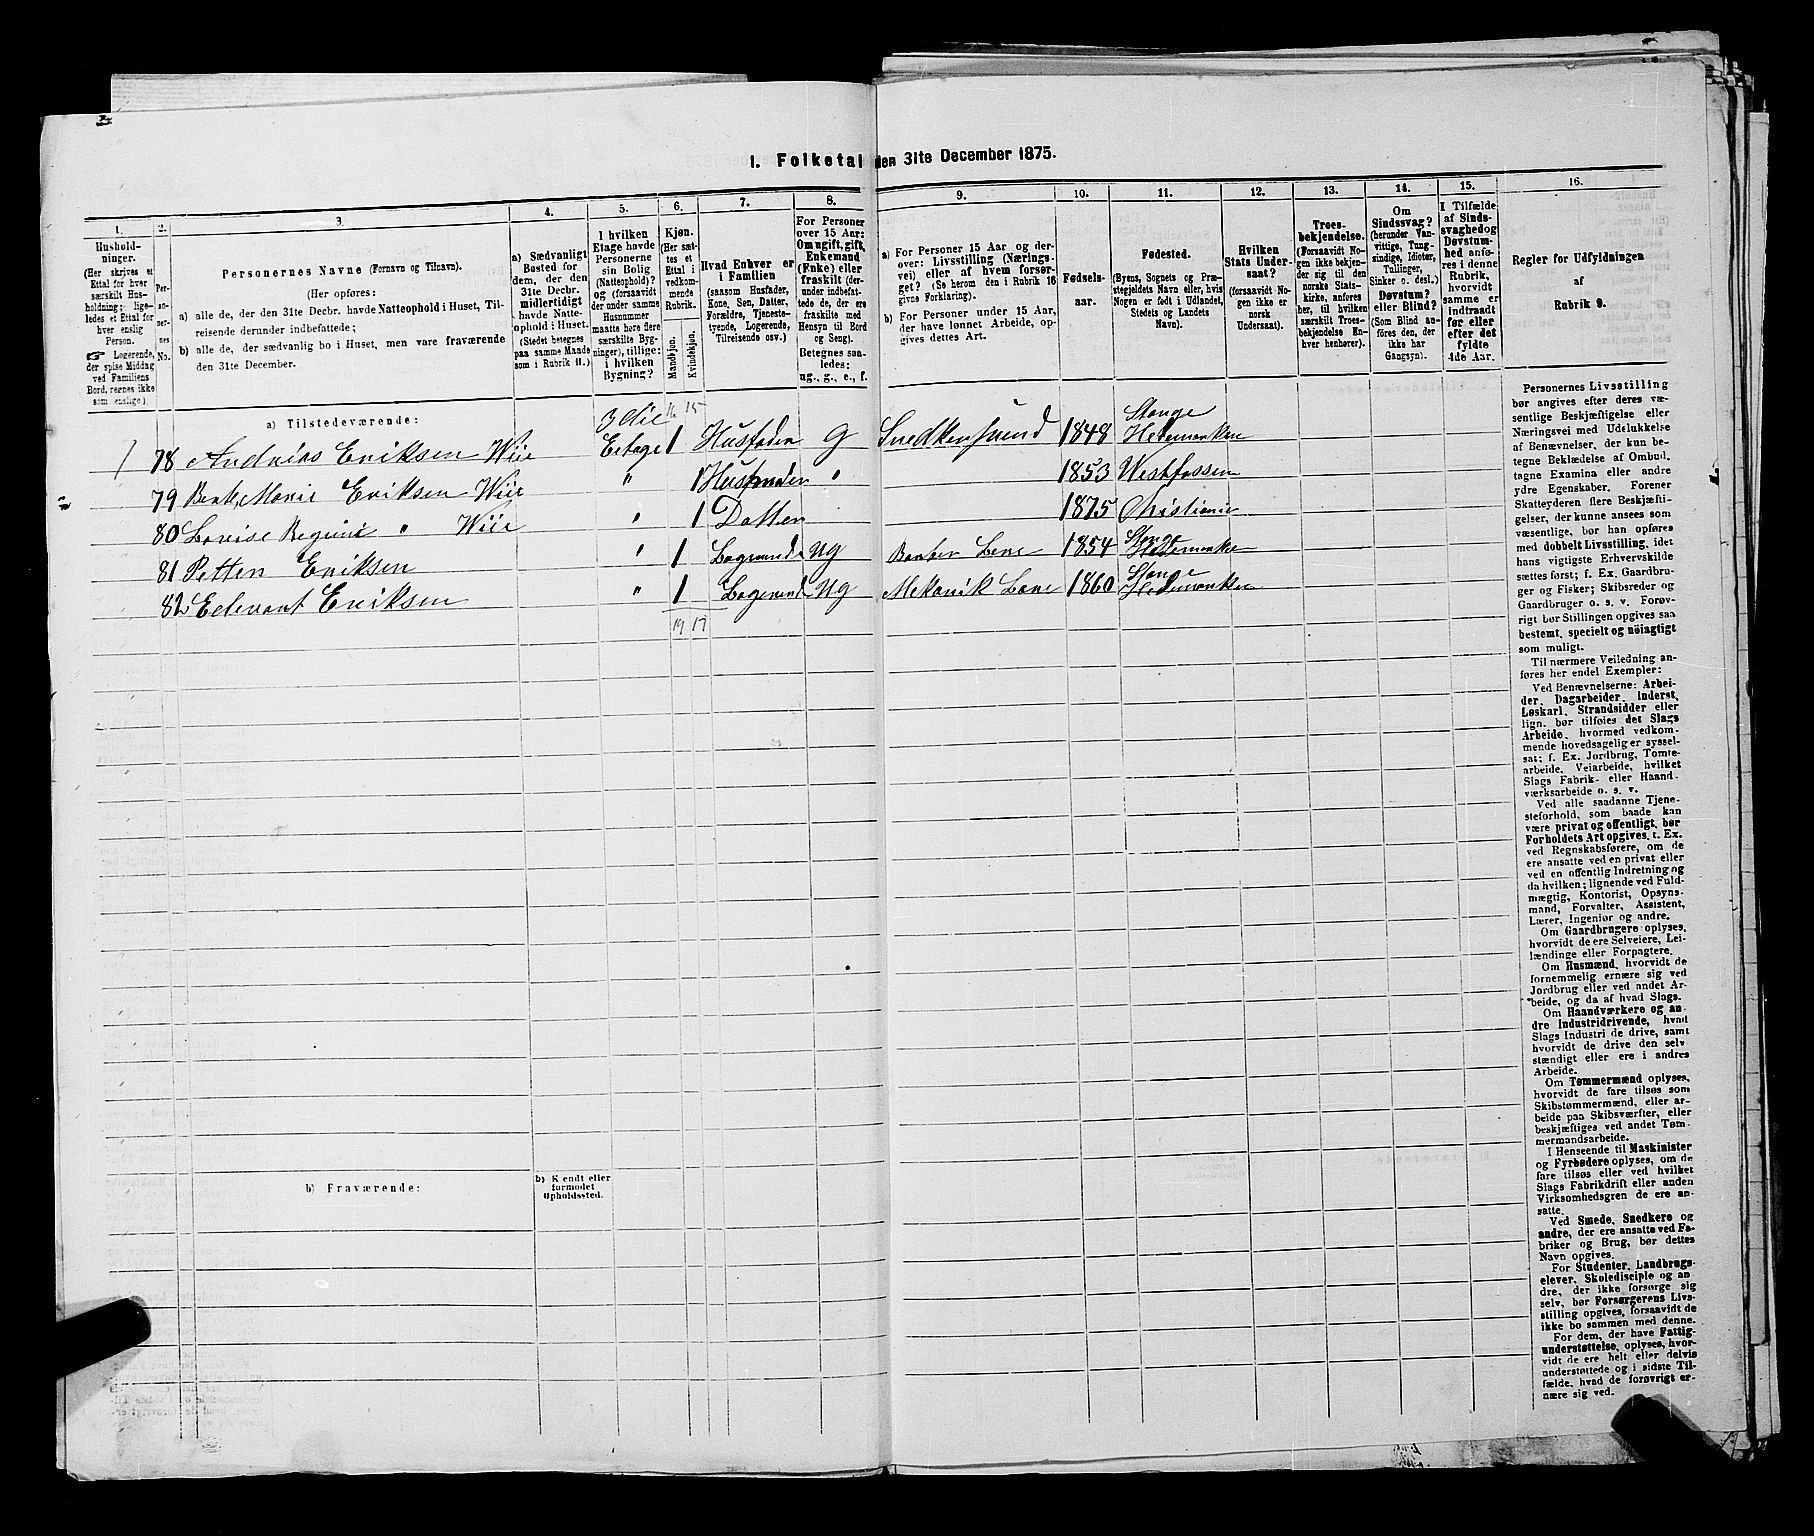 1. Folketal den 31te December 1875.
1.
2.
3.
4.
5.
6.
7.
8.
9.
10.
11.
12.
13.
14.
15.
16.
Hushold-
ninger.
(Her skrives et
Ettal for hver
særskilt Hus-
holdning; lige-
ledes et Ettal for
hver enslig
Person.
☞ Logerende,
der spise Middag
ved Familiens
Bord, regnes ikke
som enslige).
Per-
so-
ner-
nes
No.
Personernes Navne (Fornavn og Tilnavn).
(Her opføres:
a) alle de, der den 31te Decbr. havde Natteophold i Huset, Til-
reisende derunder indbefattede;
b) alle de, der sædvanlig bo i Huset, men vare fraværende
den 31te December.
a) Sædvanligt
Bosted for
dem, der den
31te Decbr.
midlertidigt
havde Natte-
ophold i Huset.
(Stedet betegnes
paa samme Maade
som i Rubrik 11.)
I hvilken
Etage havde
Personerne
sin Bolig
(Natteophold)?
og (forsaavidt
der under samme
Husnummer
maatte høre flere
særskilte Byg-
ninger), tillige:
i hvilken
Bygning?
Kjøn.
(Her sæt-
tes et
Ettal i
vedkom-
mende
Rubrik.)
Mandkjøn.
Kvindekjøn.
Hvad Enhver er
i Familien
(saasom Husfader,
Kone, Søn, Datter,
Forældre, Tjeneste-
tyende, Logerende,
Tilreisende osv.)
For Personer
over 15 Aar:
Om ugift, gift,
Enkemand
(Enke) eller
fraskilt (der-
under indbefat-
tede de, der ere
fraskilte med
Hensyn til Bord
og Seng).
Betegnes saa-
ledes:
ug., g., e., f.
a) For Personer 15 Aar og der-
over: Livsstilling (Nærings-
vei) eller af hvem forsør-
get? (Se herom den i Rubrik 16
givne Forklaring).
b) For Personer under 15 Aar,
der have lønnet Arbeide, op-
gives dettes Art.
Fødsels-
aar.
Fødested.
(Byens, Sognets og Præ-
stegjeldets Navn eller, hvis
Nogen er født i Udlandet,
Stedets og Landets
Navn).
Hvilken
Stats Under-
saat?
(forsaavidt No-
gen ikke er
norsk
Undersaat).
Troes-
bekjendelse.
(Forsaavidt No-
gen ikke bekjen-
der sig til den
norske Stats-
kirke, anføres
her, til hvilken
særskilt Troes-
bekjendelse En-
hver henhører).
Om
Sindssvag?
(herunder Van-
vittige, Tung-
sindige, Idioter,
Tullinger,
Sinker o. desl.)
Døvstum?
eller Blind?
(Som Blind an-
føres den, der
ikke har
Gangsyn).
I Tilfælde
af Sinds-
svaghed og
Døvstum-
hed anfø-
res i denne
Rubrik,
hvorvidt
samme er
indtraadt
før eller
efter det
fyldte
4de Aar.
Regler for Udfyldningen
af
Rubrik 9.
a) Tilstedeværende:
16 15
78 Andreas Eriksen Wiie 3die Etage 1 Husfader g Snedkersvend 1848 Stange Hedemarken
79 Marie Eriksen Wiie " 1 " 1853 Westfossen
80 Lovise " Wiie " 1 Datter 1875 Christiania
81 Petter Eriksen " 1 Logerende ug 1854 Stange Hedemarken
82 Edevart Eriksen " 1 Logerende ug Mekanik 1860 Stange Hedemarken
19 17
b) Fraværende:
b) Kjendt eller
formodet
Opholdssted.
Personernes Livsstilling
bør angives efter deres væ-
sentlige Beskjæftigelse eller
Næringsvei med Udelukkelse
af Benævnelser, der kun be-
tegne Beklædelse af Ombud,
tagne Examina eller andre
ydre Egenskaber. Forener
Skatteyderen flere Beskjæfti-
gelser, der kunne ansees som
væsentlige, bør han opføres
med dobbelt Livsstilling, idet
hans vigtigste Erhvervskilde
sættes først; f. Ex. Gaardbru-
ger og Fisker; Skibsreder og
Gaardbruger o. s. v. Forøv-
rigt bør Stillingen opgives saa
bestemt, specielt og nöiagtigt
som muligt.
Til nærmere Veiledning an-
føres her endel Exempler:
Ved Benævnelserne: Arbei-
der, Dagarbeider, Inderst,
Løskarl, Strandsidder eller
lign. bør tilføies det Slags
Arbeide, hvormed vedkom-
mende hovedsagelig er syssel-
sat; f. Ex. Jordbrug, Tomte-
arbeide, Veiarbeide, hvilket
Slags Fabrik- eller Haand-
værksarbeide o. s. v.
Ved alle saadanne Tjene-
steforhold, som baade kan
være privat og offentligt, bør
Forholdets Art opgives, t. Ex.
ved Regnskabsførere, om de
ere ansatte ved en privat eller
ved en offentlig Indretning og
da hvilken; lignende ved Fuld-
mægtig, Kontorist, Opsyns-
mand, Forvalter, Assistent,
Lærer, Ingeniør og andre.
Om Gaardbrugere oplyses,
hvorvidt de ere Selveiere, Lei-
lændinge eller Forpagtere.
Om Husmænd, hvorvidt de
fornemmelig ernære sig ved
Jordbrug eller ved andet Ar-
beide, og da af hvad Slags.
Om Haandværkere og an-
dre Industridrivende, hvad
Slags Industri de drive, samt
hvorvidt de drive den selv
stændigt eller ere i andres
Arbeide.
Om Tømmermænd oplyses,
hvorvidt de fare tilsøs som
Skibstømmermænd, eller ar-
beide paa Skibsværfter, eller
beskjæftiges ved andet Tøm-
mermandsarbeide.
I Henseende til Maskinister
og Fyrbødere oplyses, om de
fare tilsøs eller ved hvilket
Slags Fabrikdrift eller anden
Virksomhedsgren de ere an-
satte.
Ved Smede, Snedkere og
andre, der ere ansatte ved Fa-
briker og Brug, bør dettes
Navn opgives.
For Studenter, Landbrugs-
elever, Skoledisciple og an-
dre, der ikke forsørge sig
selv, bør Forsørgerens Livs-
stilling opgives, forsaavidt de
ikke bo sammen med denne.
For dem, der have Fattig-
understøttelse, oplyses, hvor-
vidt de ere helt eller delvis
understøttede og i sidste Til-
fælde, hvad de forøvrigt er-
nære sig ved.